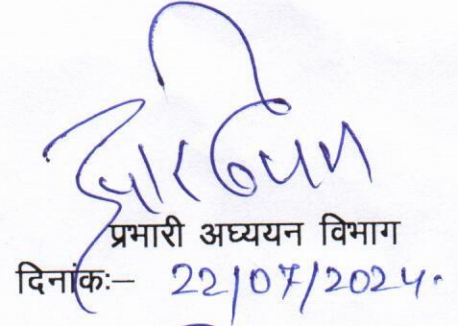 प्रभारी अघ्ययन विभाग
दिनांकः– 22/07/2024.